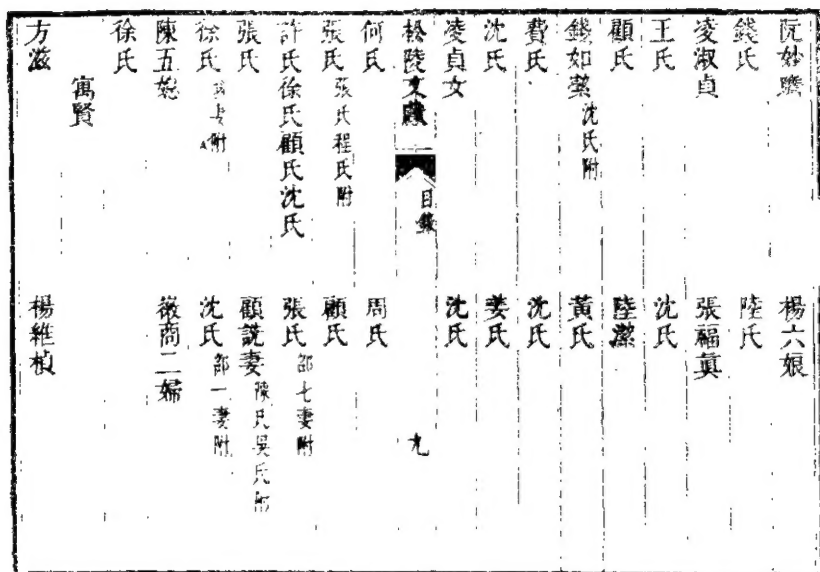 阮妙 楊六娘
錢氏 陸氏
凌淑貞 張福眞
王氏 沈氏
顧氏 陸潔
錢如瑩沈氏附 黃氏
費氏 沈氏
沈氏 姜氏
凌貞女 沈氏
松陵文獻 目錄 九
何氏 周氏
張氏張氏程氏附 顧氏
許氏徐氏顧氏沈氏 張氏邵七妻附
張氏 顧說妻陳氏吳氏附
徐氏 附 沈氏邵一妻附
陳五 商二婦
徐氏
寓賢
方滋 楊維楨